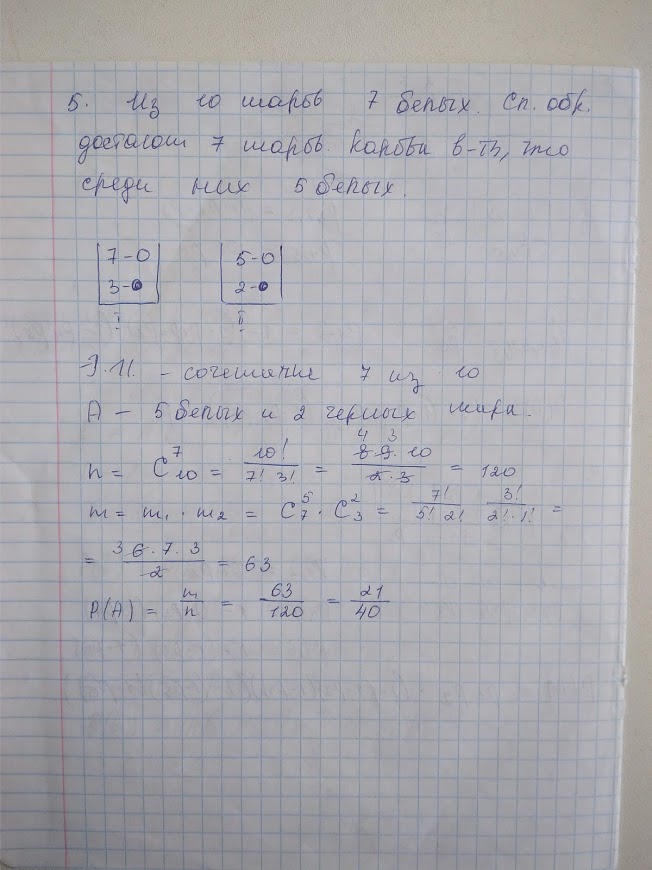 5. Из 10 шаров 7 белых. Сл. обр.
достают 7 шаров. Какова в-ть, что
среди них 5 белых.
7-О 5-О
3-● 2-●
I II
Э.И. - сочетание 7 из 10
А - 5 белых и 2 черных шара.
n = C₁₀⁷ = 10!/(7! 3!) = (8·9·10)/(2·3) = 120
4 3
m = m₁ · m₂ = C₇⁵ · C₃² = 7!/(5! 2!) 3!/(2!·1!) =
= (3 6·7·3)/2 = 63
P(A) = m/n = 63/120 = 21/40